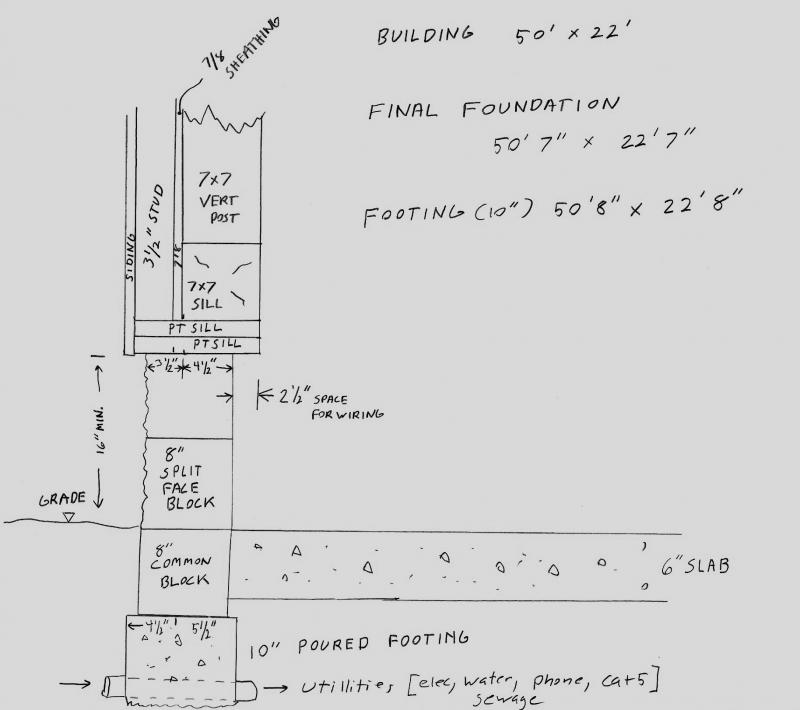 7/8
SHEATHING
BUILDING 50' x 22'
FINAL FOUNDATION
50' 7" x 22' 7"
FOOTING (10") 50'8" x 22' 8"
SIDING
3 1/2" STUD
7/8
7x7
VERT
POST
7x7
SILL
PT SILL
PT SILL
3 1/2" 4 1/2"
2 1/2" SPACE
FOR WIRING
16" MIN.
8"
SPLIT
FACE
BLOCK
GRADE
8"
COMMON
BLOCK
6" SLAB
4 1/2" 5 1/2"
10" POURED FOOTING
Utillities [elec, water, phone, cat5]
sewage